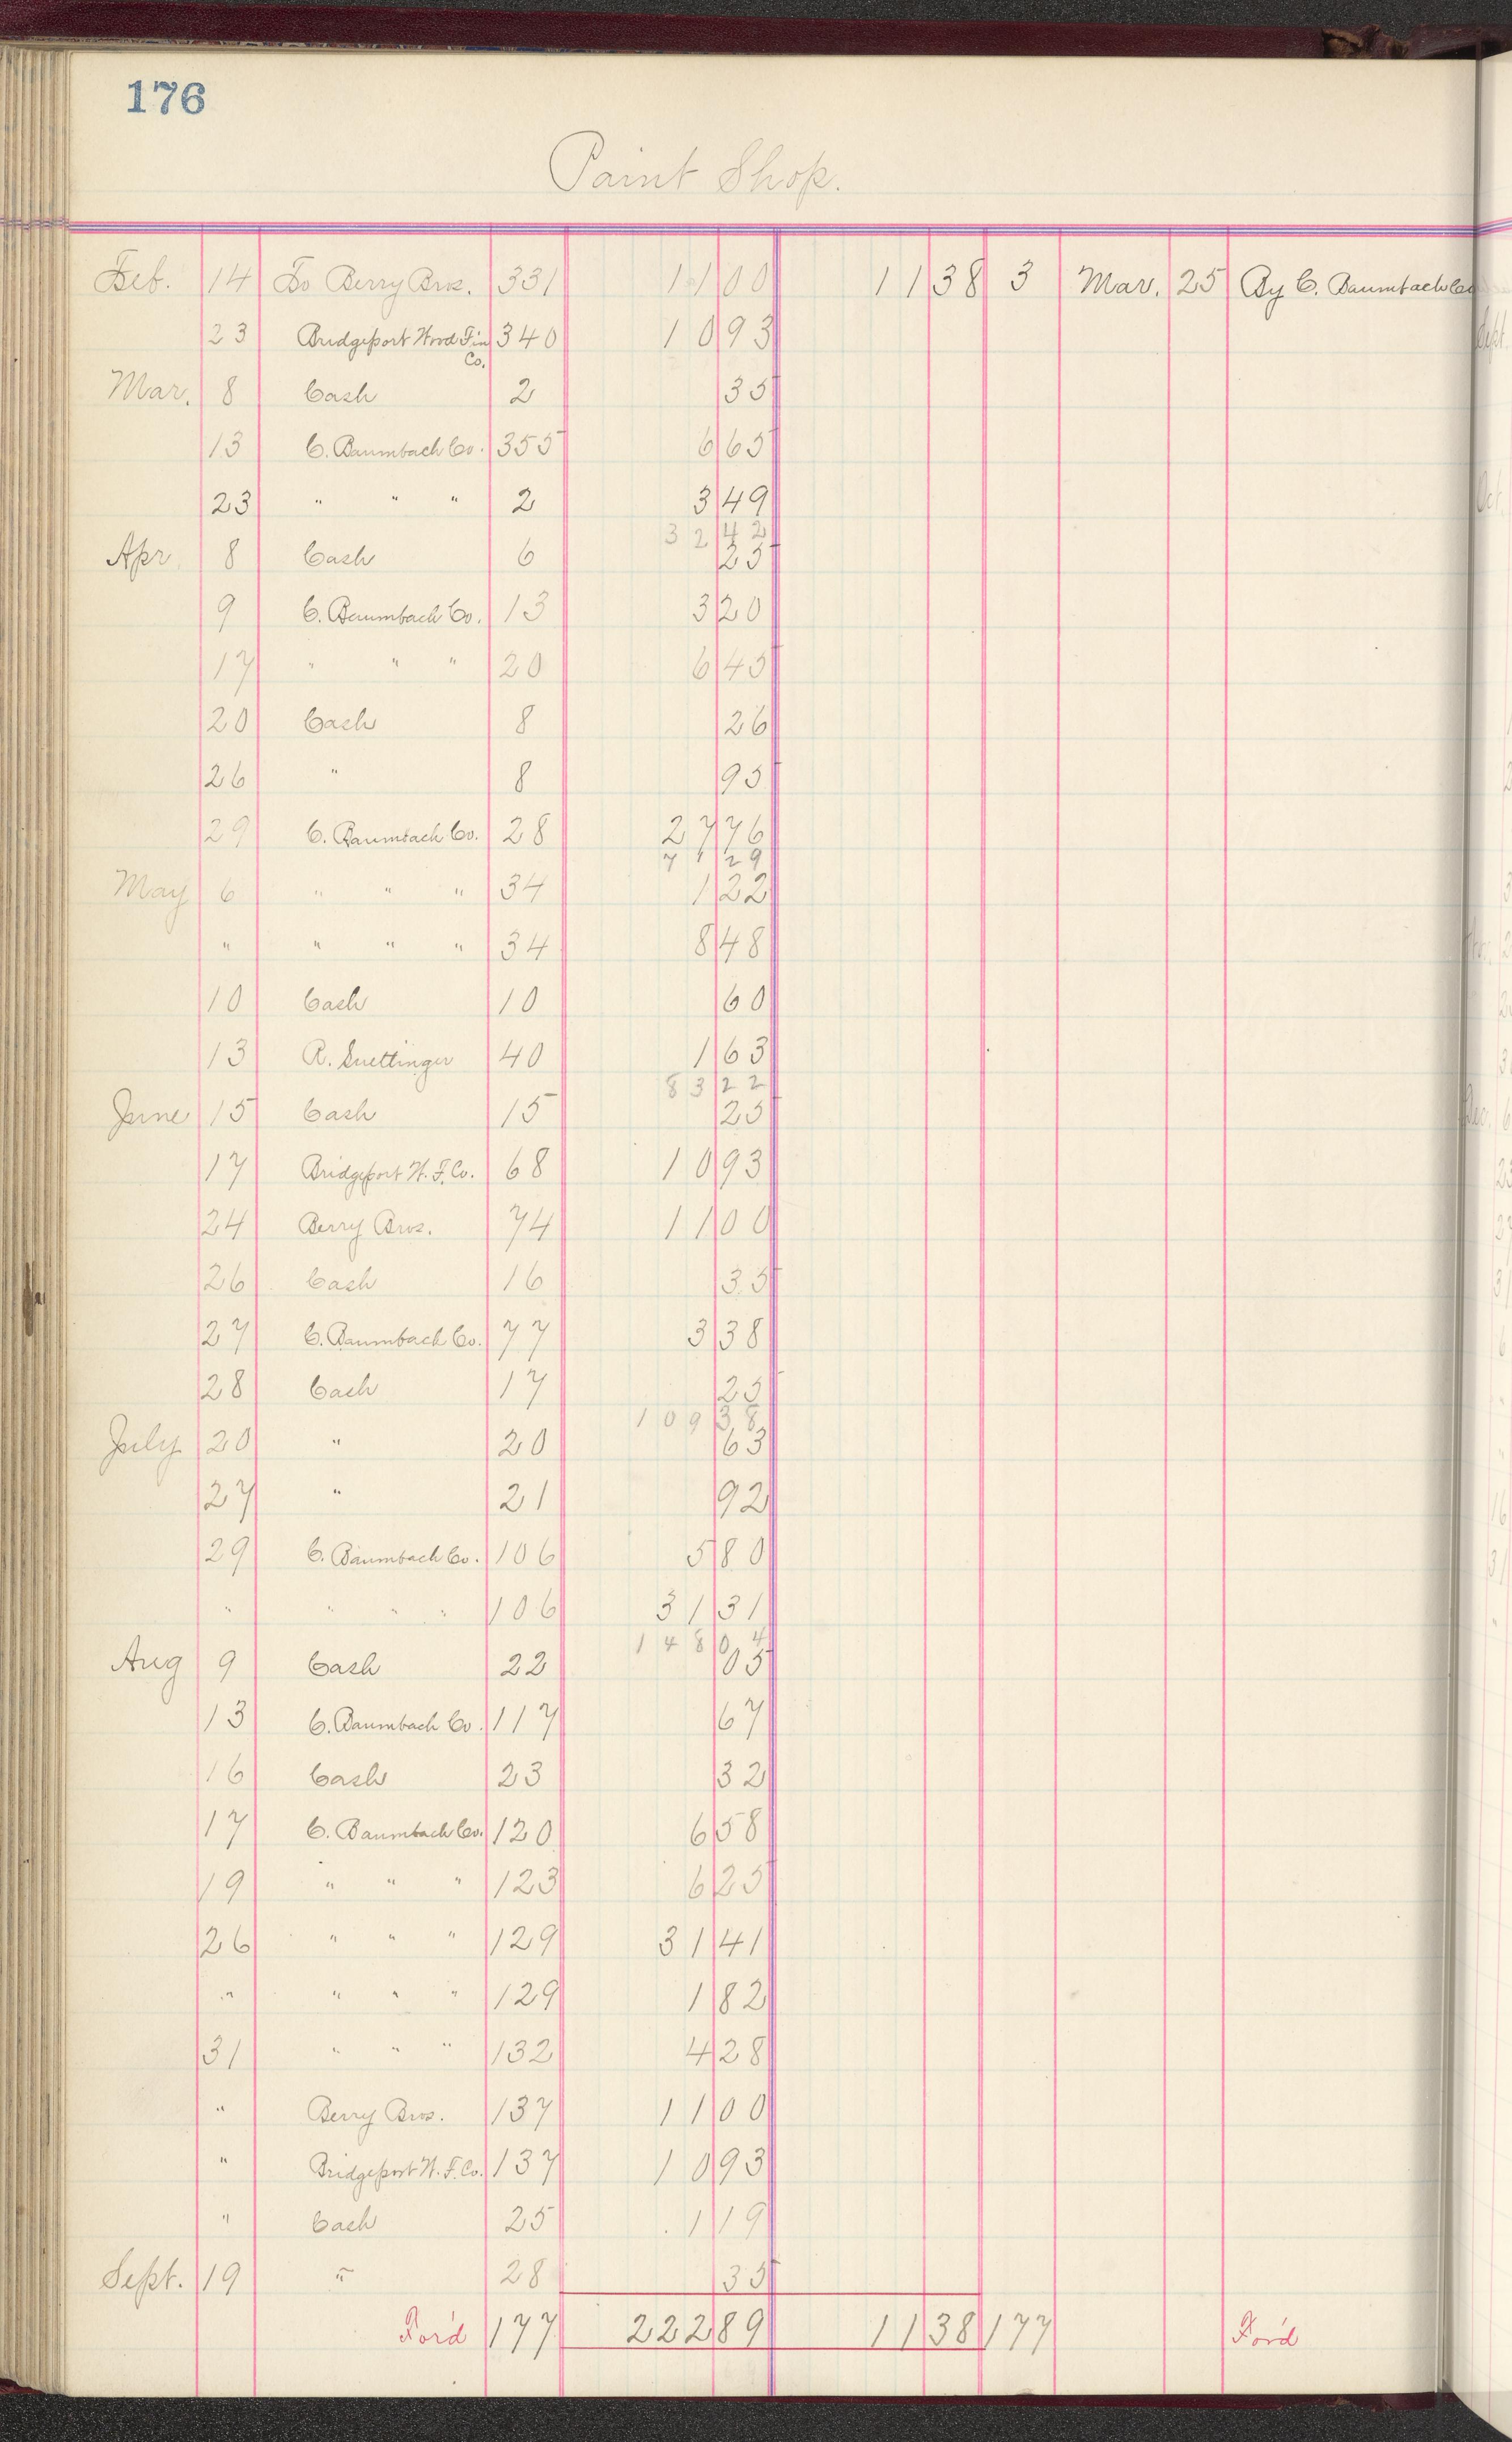 176
Paint Shop.
Feb. 14 To Berry Bros. 331 11 00 11 38 3 Mar. 25 By C. Baumbach Co
23 Bridgeport Wood Fin Co. 340 10 93
Mar. 8 Cash 2 35
13 C. Baumbach Co. 355 6 65
23 " " " 2 3 49
32 42
Apr. 8 Cash 6 25
9 C. Baumbach Co. 13 3 20
17 " " " 20 6 45
20 Cash 8 26
26 " 8 95
29 C. Baumbach Co. 28 27 76
71 29
May 6 " " " 34 1 22
" " " " 34 8 48
10 Cash 10 60
13 R. Suettinger 40 1 63
83 22
June 15 Cash 15 25
17 Bridgeport W. F. Co. 68 10 93
24 Berry Bros. 74 11 00
26 Cash 16 35
27 C. Baumbach Co. 77 3 38
28 Cash 17 25
109 38
July 20 " 20 63
27 " 21 92
29 C. Baumbach Co. 106 5 80
" " " " 106 31 31
148 04
Aug 9 Cash 22 05
13 C. Baumbach Co. 117 67
16 Cash 23 32
17 C. Baumbach Co. 120 6 58
19 " " " 123 6 25
26 " " " 129 31 41
" " " " 129 1 82
31 " " " 132 4 28
" Berry Bros. 137 11 00
" Bridgeport W. F. Co. 137 10 93
" Cash 25 1 19
Sept. 19 " 28 35
For'd 177 222 89 11 38 177 For'd